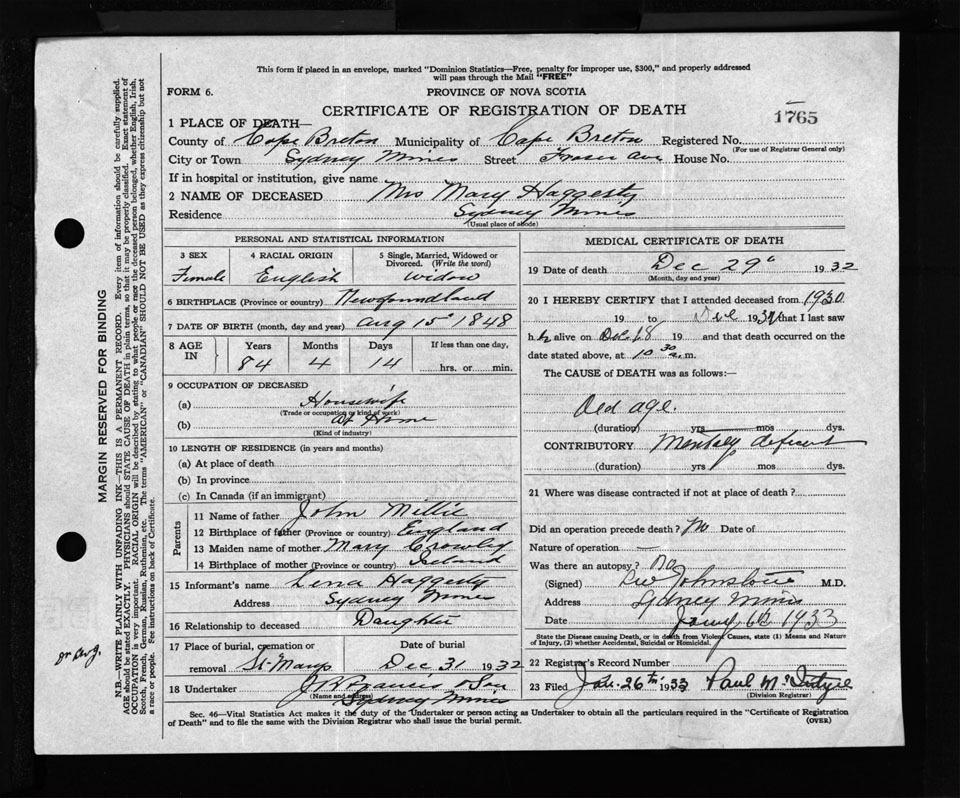 This form if placed in an envelope, marked "Dominion Statistics—Free, penalty for improper use, $300," and properly addressed
will pass through the Mail "FREE"
FORM 6.
PROVINCE OF NOVA SCOTIA
CERTIFICATE OF REGISTRATION OF DEATH
1765
1 PLACE OF DEATH—
County of Cape Breton Municipality of Cape Breton Registered No.
(For use of Registrar General only)
City or Town Sydney Mines Street Fraser Ave House No.
If in hospital or institution, give name
2 NAME OF DECEASED Mrs Mary Haggerty
Residence Sydney Mines
(Usual place of abode)
PERSONAL AND STATISTICAL INFORMATION
3 SEX 4 RACIAL ORIGIN 5 Single, Married, Widowed or Divorced. (Write the word)
Female English Widow
6 BIRTHPLACE (Province or country) Newfoundland
7 DATE OF BIRTH (month, day and year) Aug 15 1848
8 AGE IN Years Months Days If less than one day,
84 4 14 hrs. or min.
9 OCCUPATION OF DECEASED
(a) Housewife
(Trade or occupation or kind of work)
(b) At Home
(Kind of industry)
10 LENGTH OF RESIDENCE (in years and months)
(a) At place of death
(b) In province
(c) In Canada (if an immigrant)
Parents
11 Name of father John Millie
12 Birthplace of father (Province or country) England
13 Maiden name of mother Mary Crowley
14 Birthplace of mother (Province or country) Ireland
15 Informant's name Lena Haggerty
Address Sydney Mines
16 Relationship to deceased Daughter
17 Place of burial, cremation or removal St Marys Date of burial Dec 31 1932
18 Undertaker Francis & Son
(Name and address) Sydney Mines
MEDICAL CERTIFICATE OF DEATH
19 Date of death Dec 29 1932
(Month, day and year)
20 I HEREBY CERTIFY that I attended deceased from 1930
19 to Dec 19 that I last saw
h alive on Dec 19 and that death occurred on the
date stated above, at 10 30 a.m.
The CAUSE of DEATH was as follows:—
Old age.
(duration) yrs mos dys.
CONTRIBUTORY Mentally deficient
(duration) yrs mos dys.
21 Where was disease contracted if not at place of death?
Did an operation precede death? No Date of
Nature of operation —
Was there an autopsy? No
(Signed) Johnstone M.D.
Address Sydney Mines
Date Jany 6th 1933
State the Disease causing Death, or in death from Violent Causes, state (1) Means and Nature
of Injury, (2) whether Accidental, Suicidal or Homicidal.
22 Registrar's Record Number
23 Filed Jan 26th 1933 Paul McIntyre
(Division Registrar)
Sec. 46—Vital Statistics Act makes it the duty of the Undertaker or person acting as Undertaker to obtain all the particulars required in the "Certificate of Registration
of Death" and to file the same with the Division Registrar who shall issue the burial permit.
(OVER)
MARGIN RESERVED FOR BINDING
N.B.—WRITE PLAINLY WITH UNFADING INK—THIS IS A PERMANENT RECORD. Every item of information should be carefully supplied.
AGE should be stated EXACTLY. PHYSICIANS should STATE CAUSE OF DEATH in plain terms, so that it may be properly classified. Exact statement of
OCCUPATION is very important. RACIAL ORIGIN will be described by stating to what people or race the deceased person belonged, whether English, Irish,
Scotch, French, German, Russian, Ruthenian, etc. The terms "AMERICAN" or "CANADIAN" SHOULD NOT BE USED as they express citizenship but not
a race or people. See instructions on back of Certificate.